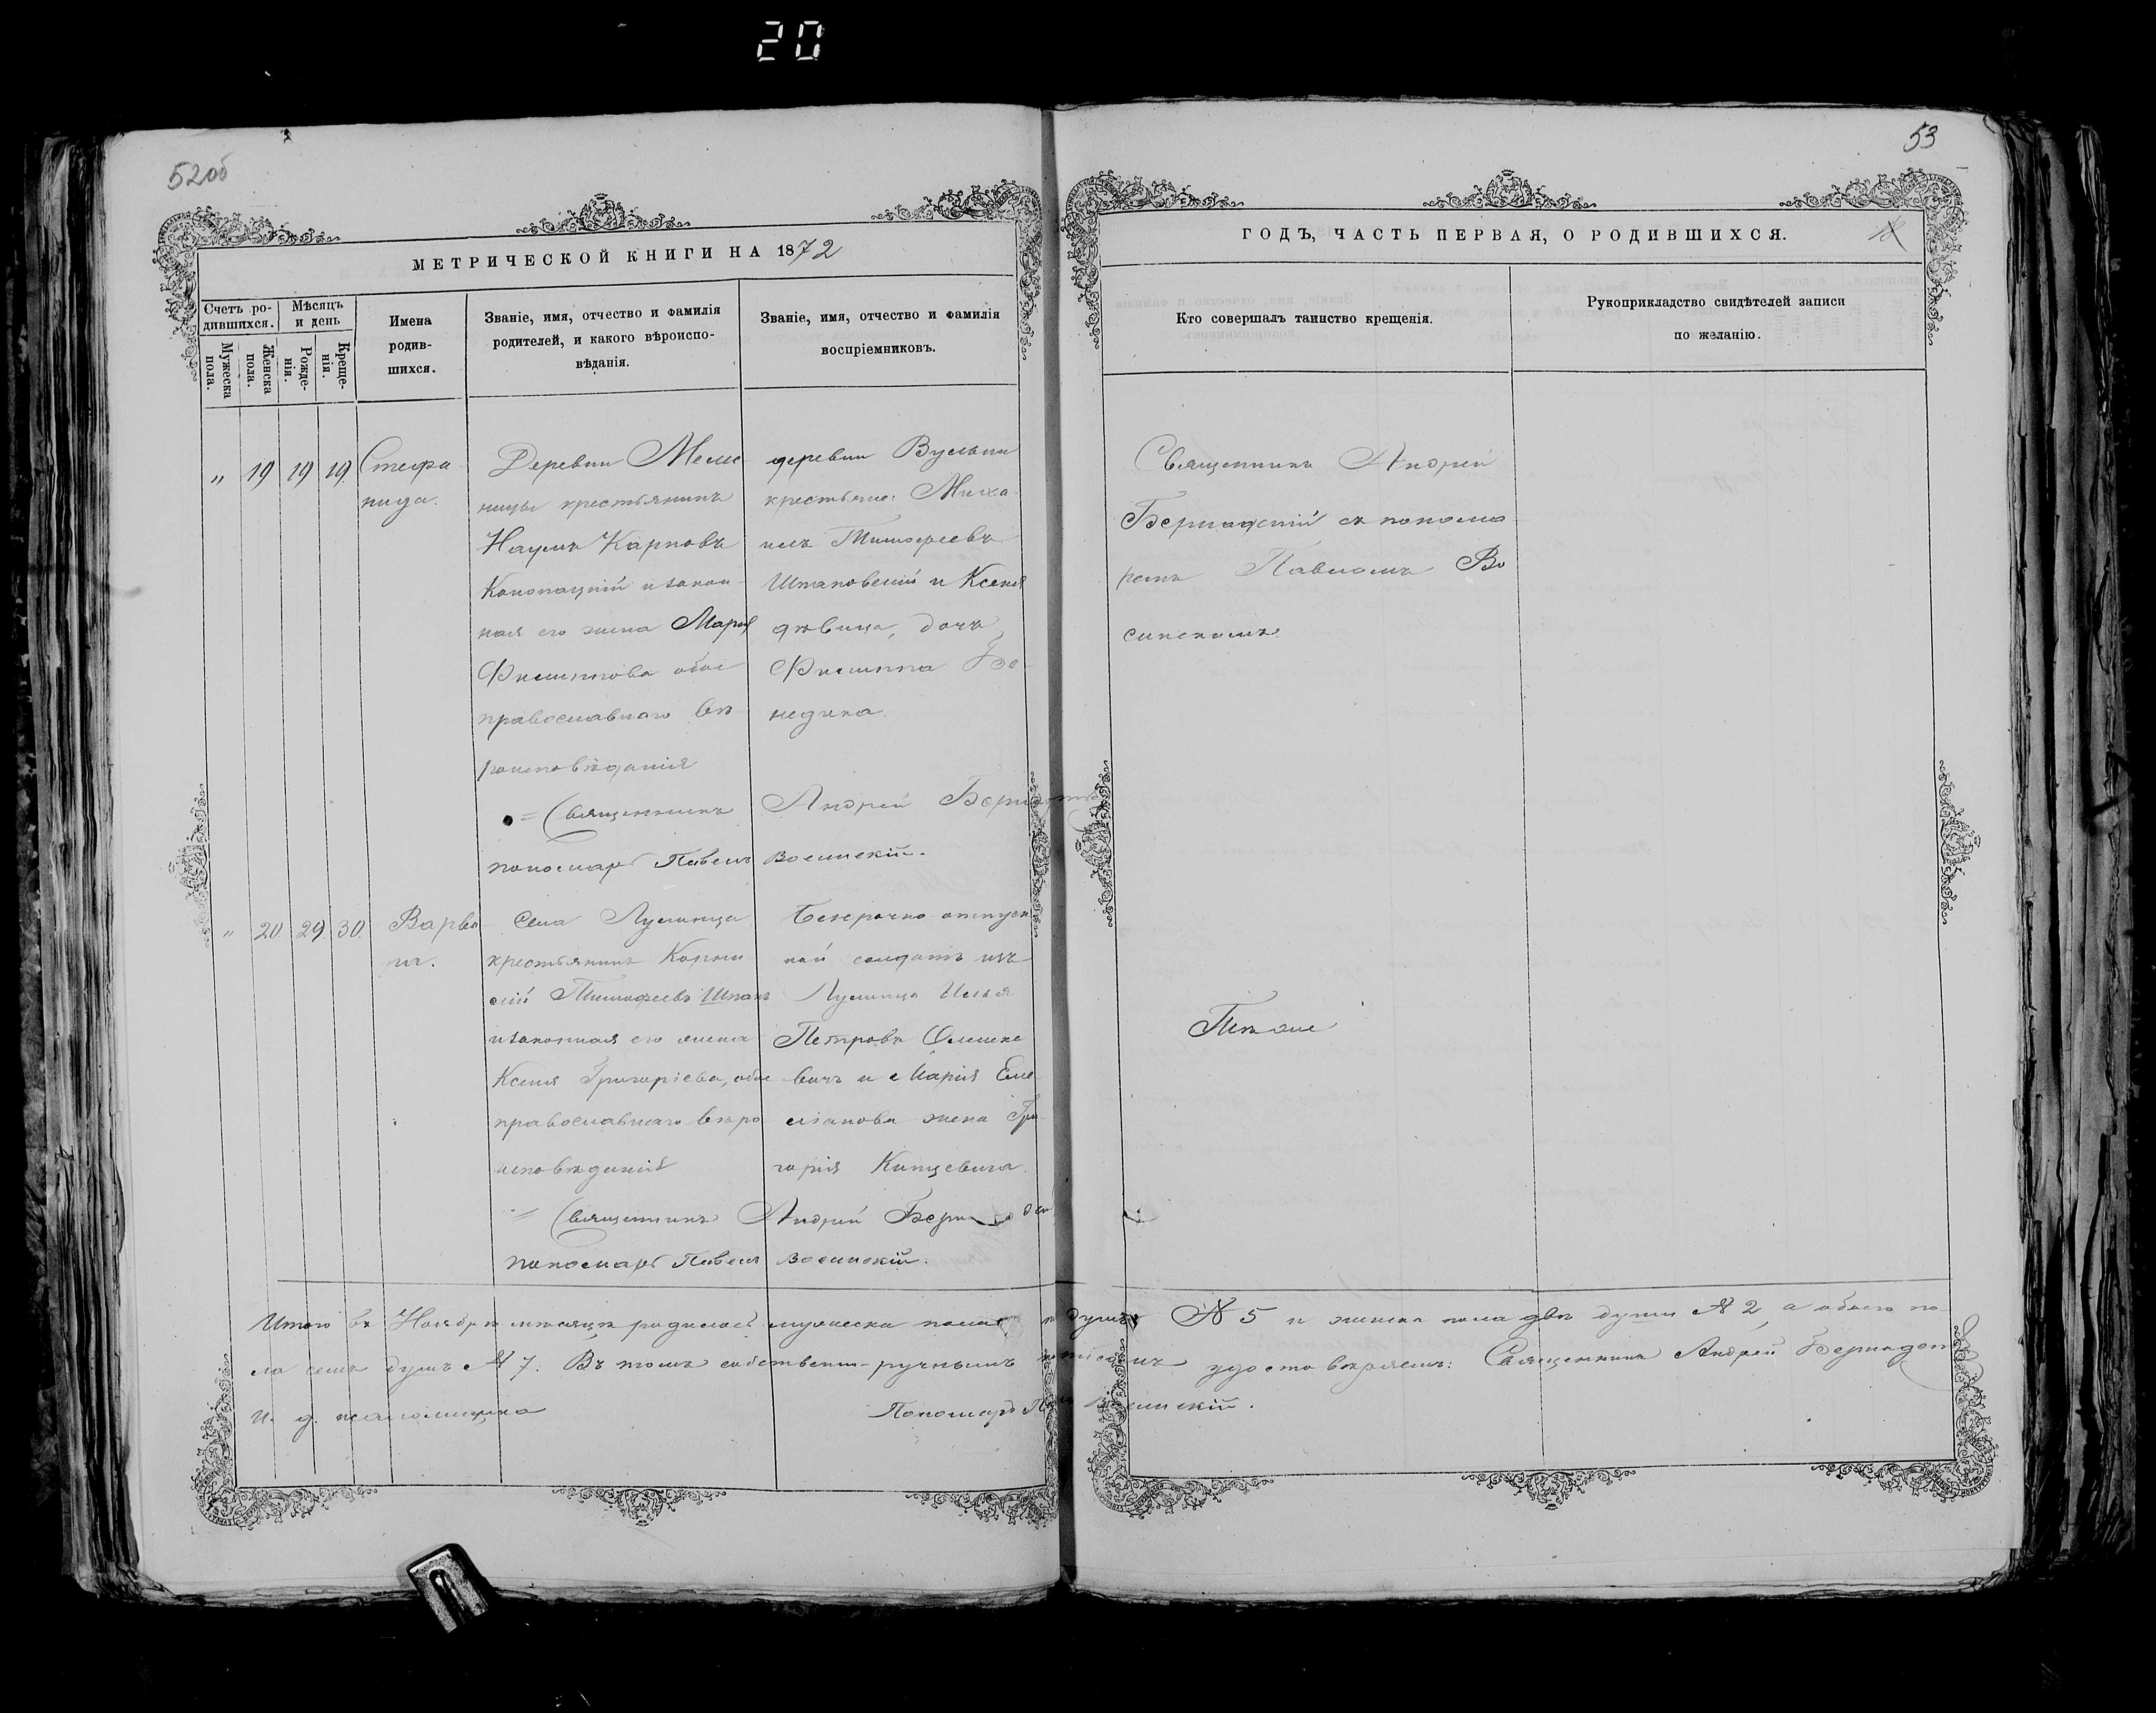 20
52об
53
МЕТРИЧЕСКОЙ КНИГИ НА 1872
ГОДЪ, ЧАСТЬ ПЕРВАЯ, О РОДИВШИХСЯ.
18
Счетъ ро-
дившихся.
Мужеска
пола.
Женска
пола.
Мѣсяцъ
и день
Рожде-
нія.
Креще-
нія.
Имена
родив-
шихся.
Званіе, имя, отчество и фамилія
родителей, и какого вѣроиспо-
вѣданія.
Званіе, имя, отчество и фамилія
воспріемниковъ.
Кто совершалъ таинство крещенія.
Рукоприкладство свидѣтелей записи
по желанію.
" 19 19 19. Стефа
нида.
Деревни
крестьянинъ
Наумъ Карповъ
Конопацкій и закон
ная его жена Марія
Филиппова обое
православнаго вѣ
роисповѣданія
деревни Вульки
крестьяне: Миха
илъ Тимофеевъ
Шпаковскій и Ксенія
дѣвица, дочь
Филиппа
Священникъ Андрей
съ понома
ремъ Павломъ Во
синскимъ.
= Священникъ Андрей
пономарь Павелъ Восинскій.
" 20 29. 30. Варва
ра.
Села Лунинца
крестьянинъ Корни
лій Тимофеевъ Шпакъ
и законная его жена
Ксенія Григоріева, обое
православнаго вѣро
исповѣданія
Безсрочно-отпуск
ной солдатъ изъ
Лунинца Илья
Петровъ
вичъ и Марія Еме
ліанова жена Гри
горія
Тѣ же
= Священникъ Андрей
пономарь Павелъ Восинскій.
Итого въ Ноябрѣ мѣсяцѣ родилось мужеска пола душъ № 5 и женска пола двѣ души № 2, а обоего по
ла семь душъ № 7. Въ томъ собственно-ручнымъ подписомъ удостовѣряемъ: Священникъ Андрей
И. д. псаломщика Пономарь Восинскій.